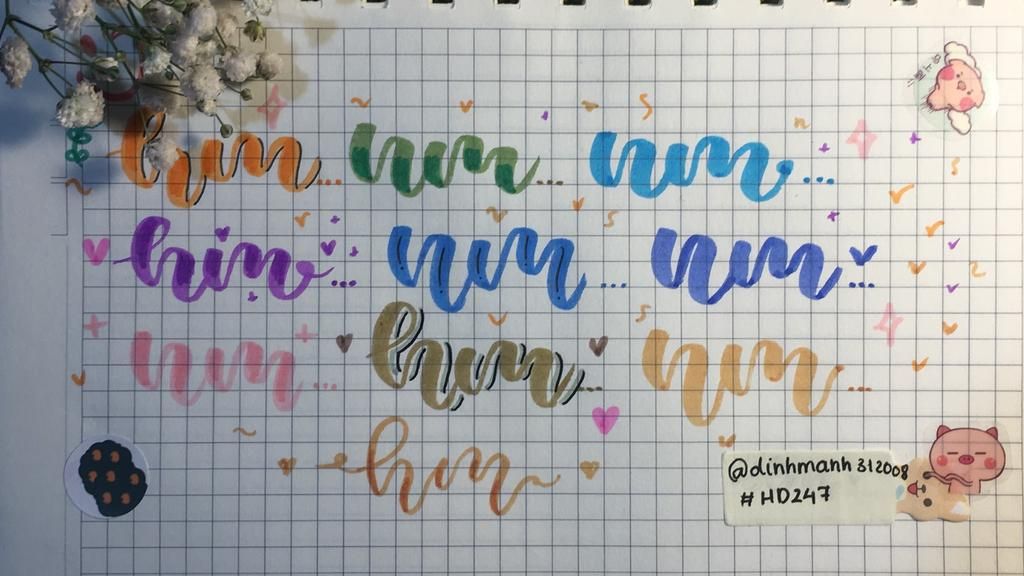 hm... nm... nm...
hm... nm... nm...
nm... hm... nm...
hm
@dinhmanh312008
#HD247